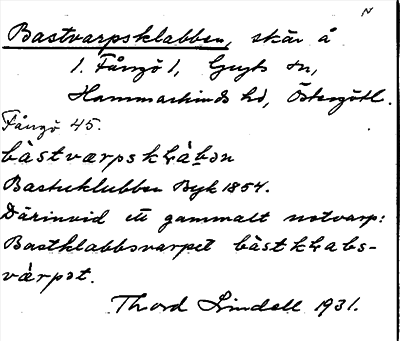 N
Bastvarpsklabben, skär å
1. Fångö 1, Gryts sn,
Hammarkinds hd, Östergötl.
Fångö 45.
bàstværpskɫáb̥ən
Bastuklubben Byk 1854.
Därinvid ett gammalt notvarp:
Bastklabbsvarpet bàstkɫabs-
várpət.
Thord Lindell 1931.